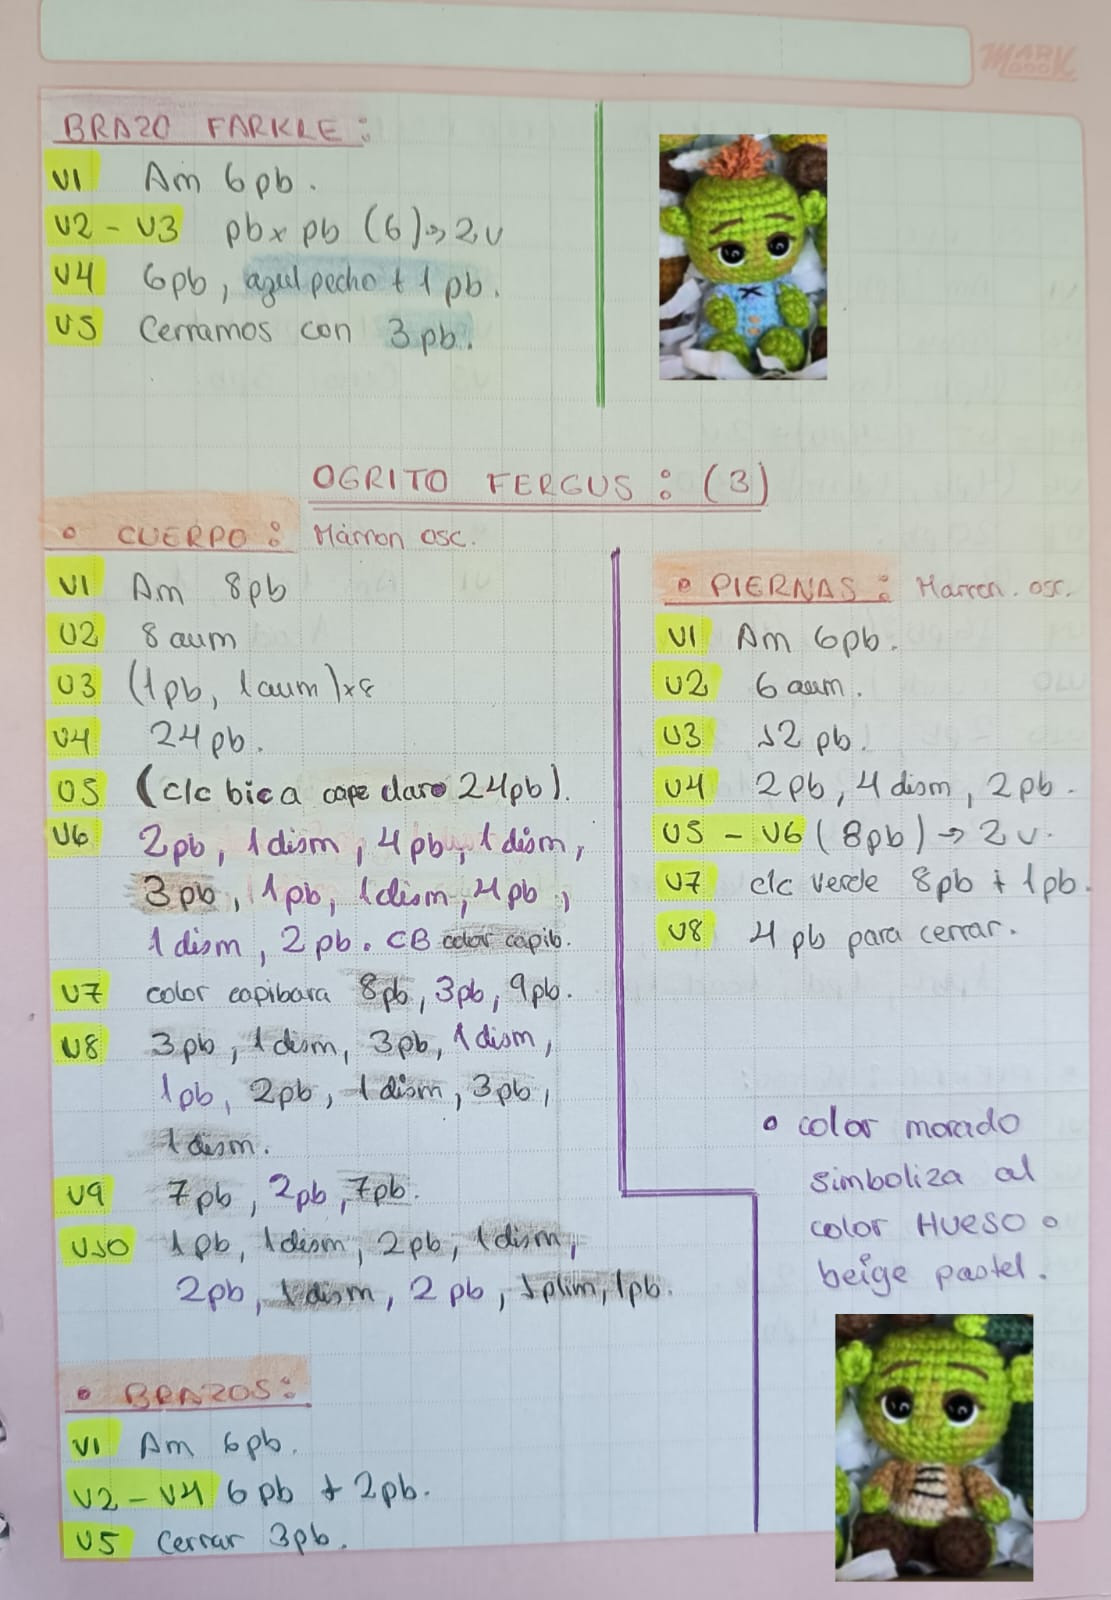 MARK BOOK
BRAZO FARKLE:
V1 Am 6pb.
V2 - V3 pb x pb (6) → 2v
V4 6pb, azul pecho + 1 pb.
V5 Cerramos con 3pb.
OGRITO FERGUS: (3)
• CUERPO: Márron osc.
V1 Am 8pb
V2 8 aum
V3 (1pb, 1aum)x8
V4 24pb.
V5 (c/c bica cape claro 24pb).
V6 2pb, 1dism, 4pb, 1dism,
3pb, 1pb, 1dism, 4pb,
1dism, 2pb. CB color capib.
V7 color capibara 8pb, 3pb, 9pb.
V8 3pb, 1dism, 3pb, 1dism,
1pb, 2pb, 1dism, 3pb,
1dism.
V9 7pb, 2pb, 7pb.
V10 1pb, 1dism, 2pb, 1dism,
2pb, 1dism, 2pb, 1plim, 1pb.
• BRAZOS:
V1 Am 6pb.
V2 - V4 6pb + 2pb.
V5 Cerrar 3pb.
• PIERNAS: Marron. osc.
V1 Am 6pb.
V2 6 aum.
V3 12 pb.
V4 2pb, 4 dism, 2pb.
V5 - V6 (8pb) → 2v.
V7 c/c verde 8pb + 1pb.
V8 4 pb para cerrar.
• color morado
simboliza al
color HUESO o
beige pastel.